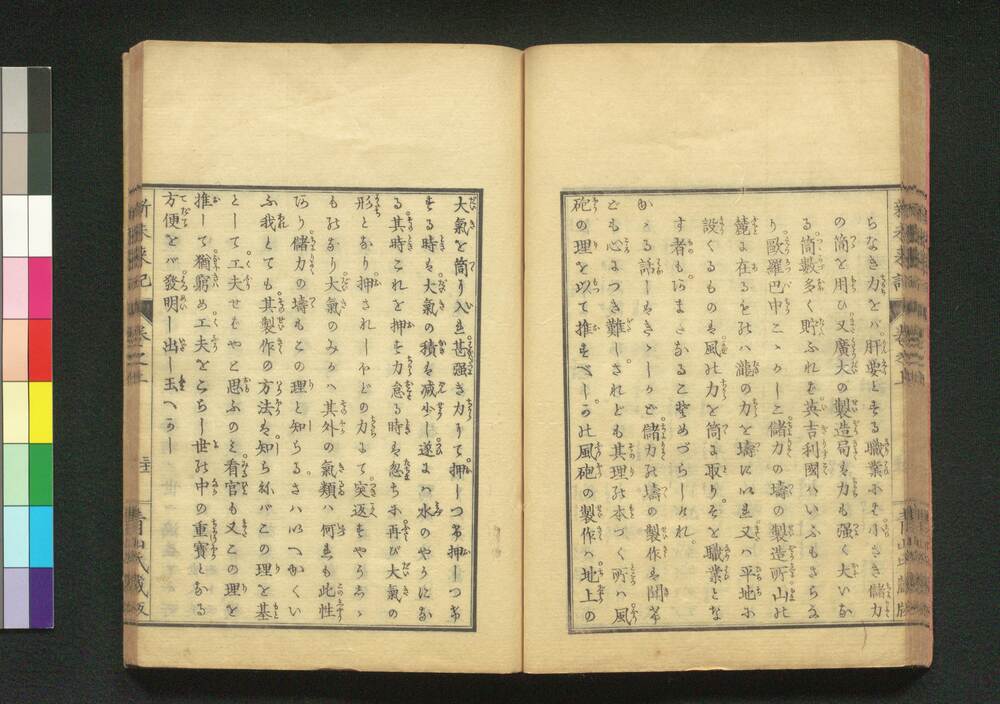 ちなき力をバ肝要とする職業にそ小さき儲力
の筒を用ひ又廣大の製造局にも力も强く大いな
る筒數多く貯ふれど英吉利國ハいふもさらな
り歐羅巴中こゝかしこ儲力の壔の製造所山の
麓に在るをのハ瀧の力を壔に以れ又ハ平地に
設くるものハ風の力を筒に取りそを職業とな
す者もあまたなること更めづらしけれ
かゝる話しをきゝしかど儲力の壔の製作を聞
ども心につき難しされども其理の本づく所ハ風
砲の理を以て推すべしかの風砲の製作ハ地上の
大氣を筒に入れ甚强き力にて押しつけ押しつけ
する時ハ大氣の積も减少し遂にハ水のやうにな
る其時これを押す力怠る時ハ忽ちに再び大氣の
形となり押されしやどの力にて突返すやうなる
ものなり大氣のみかハ其外の氣類ハ何れも此性
あり儲力の壔もこの理と知らるさハいへかくい
ふ我とても其製作の方法を知ちねバこの理を基
として工夫せもやと思ふのミ看官も又この理を
推して猶窮め工夫をこらし世の中の重寶となる
方便をバ發明し出し玉へかし
新未來記
卷之上
青山氏藏版